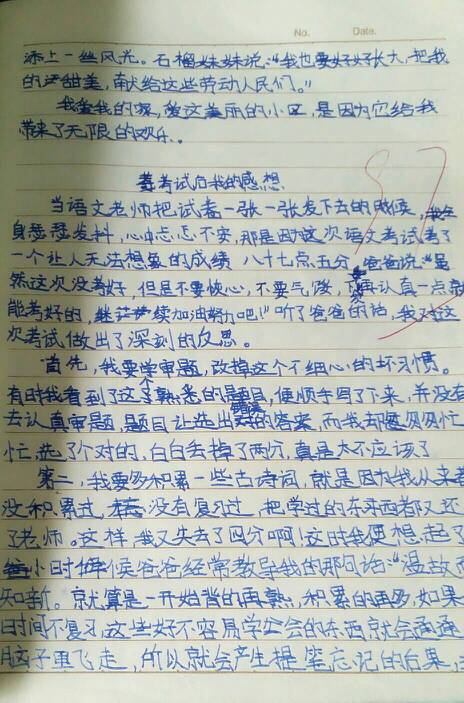 No. Date.
添上一丝风光。石榴妹妹说:“我也要好好长大,把我
的甜美,献给这些劳动人民们。”
我爱我的家,爱这美丽的小区,是因为它给我
带来了无限的欢乐。
考试后我的感想
当语文老师把试卷一张一张发下去的时候,我全
身瑟瑟发抖,心中忐忑不安,那是因为这次语文考试考了
一个让人无法想象的成绩 八十七点五分,爸爸说:“虽
然这次没考好,但是不要灰心,不要气馁,下次再认真一点就
能考好的,继续加油努力吧!”听了爸爸的话,我对这
次考试做出了深刻的反思。
首先,我要学审题,改掉这个不细心的坏习惯。
有时我看到了这个熟悉的题目,便顺手写了下来,并没有
去认真审题,题目让选出错误的答案,而我却匆匆忙
忙选了个对的,白白丢掉了两分,真是太不应该了
第二,我要多积累一些古诗词,就是因为我从来都
没积累过,没有复习过,把学过的东西都又还
了老师。这样,我又失去了四分啊!这时我便想起了
小时候爸爸经常教导我的那句话:“温故而
知新。就算是一开始背的再熟,积累的再多,如果
时间不复习,这些好不容易学会的东西就会通通
脑子里飞走,所以就会产生提笔忘记的后果,
87